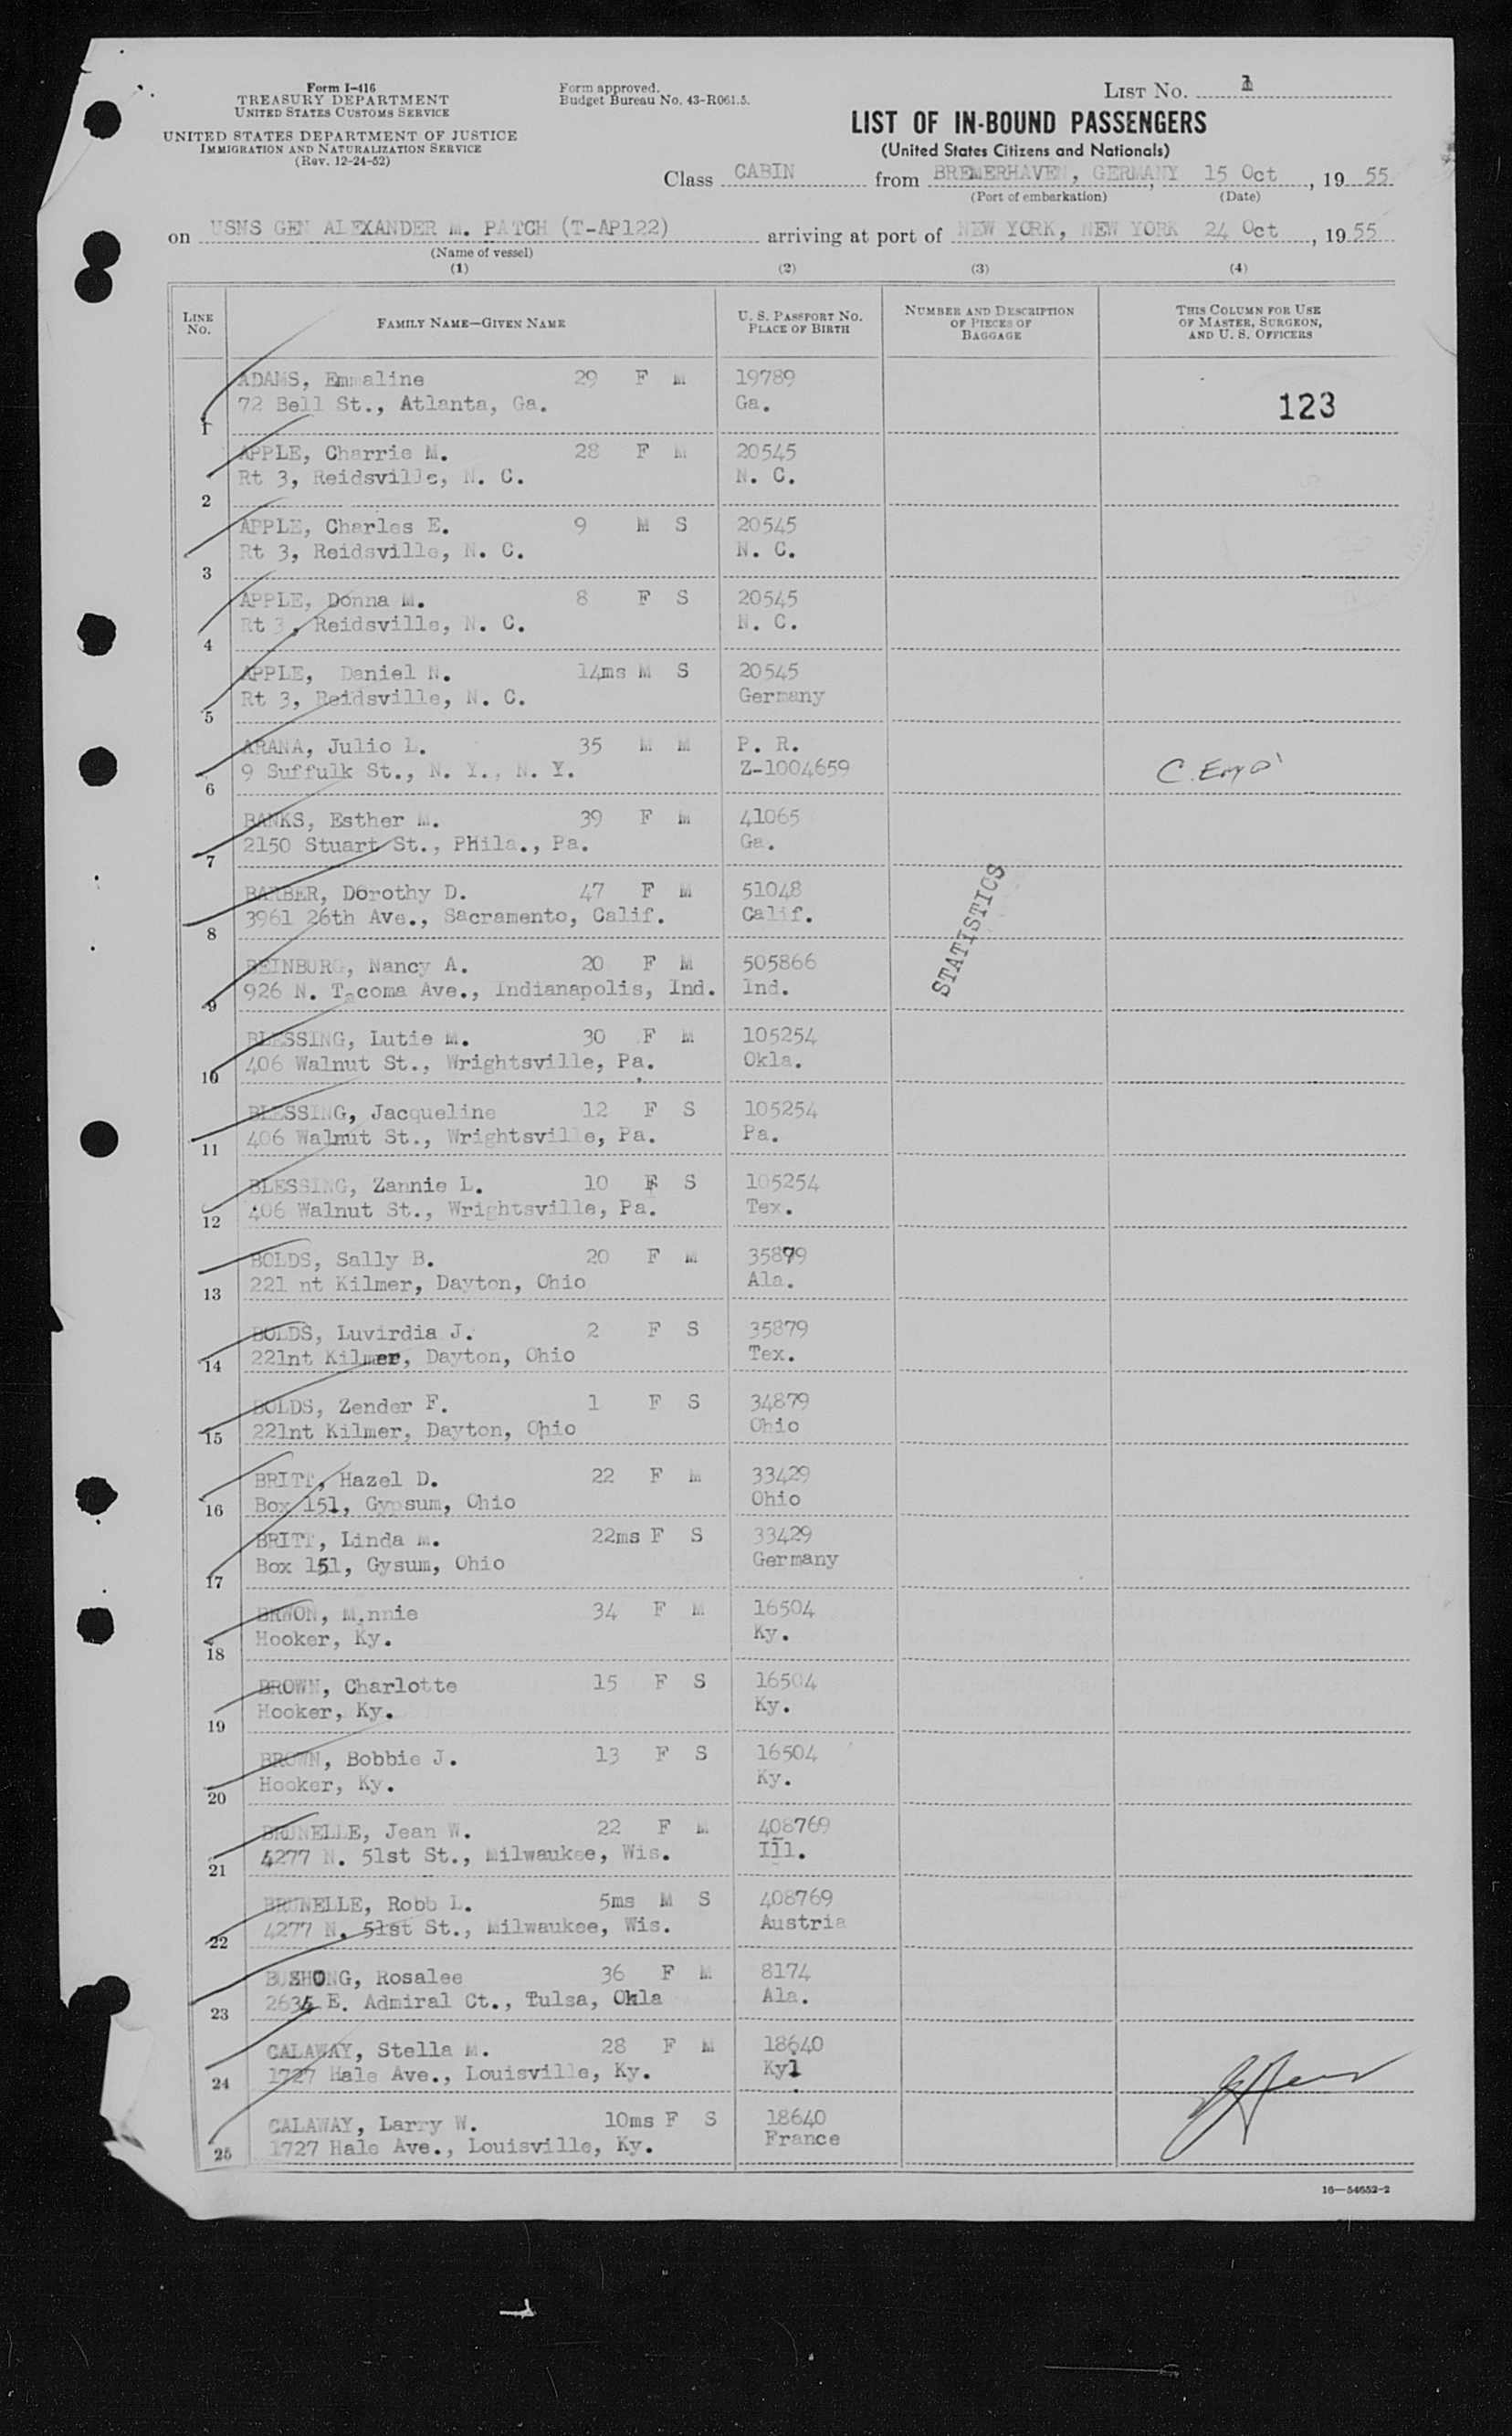 Form I-416
TREASURY DEPARTMENT
UNITED STATES CUSTOMS SERVICE
UNITED STATES DEPARTMENT OF JUSTICE
IMMIGRATION AND NATURALIZATION SERVICE
(Rev. 12-24-52)
Form approved.
Budget Bureau No. 43-R061.5.
LIST NO. 1
LIST OF IN-BOUND PASSENGERS
(United States Citizens and Nationals)
Class CABIN from BREMERHAVEN, GERMANY, 15 Oct, 19 55
(Port of embarkation) (Date)
on USNS GEN ALEXANDER M. PATCH (T-AP122) arriving at port of NEW YORK, NEW YORK 24 Oct, 19 55
(Name of vessel)
(1) (2) (3) (4)
LINE NO. FAMILY NAME—GIVEN NAME U. S. PASSPORT NO. PLACE OF BIRTH NUMBER AND DESCRIPTION OF PIECES OF BAGGAGE THIS COLUMN FOR USE OF MASTER, SURGEON, AND U. S. OFFICERS
ADAMS, Emmaline 29 F M 19789
72 Bell St., Atlanta, Ga. Ga. 123
1
APPLE, Charrie M. 28 F M 20545
Rt 3, Reidsville, N. C. N. C.
2
APPLE, Charles E. 9 M S 20545
Rt 3, Reidsville, N. C. N. C.
3
APPLE, Donna M. 8 F S 20545
Rt 3, Reidsville, N. C. N. C.
4
APPLE, Daniel N. 14ms M S 20545
Rt 3, Reidsville, N. C. Germany
5
ARANA, Julio L. 35 M M P. R.
9 Suffulk St., N. Y., N. Y. Z-1004659
6
BANKS, Esther M. 39 F M 41065
2150 Stuart St., PHila., Pa. Ga.
7
BARBER, Dorothy D. 47 F M 51048
3961 26th Ave., Sacramento, Calif. Calif.
8
STATISTICS
BEINBURG, Nancy A. 20 F M 505866
926 N. Tacoma Ave., Indianapolis, Ind. Ind.
9
BLESSING, Lutie M. 30 F M 105254
406 Walnut St., Wrightsville, Pa. Okla.
10
BLESSING, Jacqueline 12 F S 105254
406 Walnut St., Wrightsville, Pa. Pa.
11
BLESSING, Zannie L. 10 F S 105254
406 Walnut St., Wrightsville, Pa. Tex.
12
BOLDS, Sally B. 20 F M 35879
221 nt Kilmer, Dayton, Ohio Ala.
13
BOLDS, Luvirdia J. 2 F S 35879
221nt Kilmer, Dayton, Ohio Tex.
14
BOLDS, Zender F. 1 F S 34879
221nt Kilmer, Dayton, Ohio Ohio
15
BRITT, Hazel D. 22 F M 33429
Box 151, Gypsum, Ohio Ohio
16
BRITT, Linda M. 22ms F S 33429
Box 151, Gysum, Ohio Germany
17
BRWON, Minnie 34 F M 16504
Hooker, Ky. Ky.
18
BROWN, Charlotte 15 F S 16504
Hooker, Ky. Ky.
19
BROWN, Bobbie J. 13 F S 16504
Hooker, Ky. Ky.
20
BRUNELLE, Jean W. 22 F M 408769
4277 N. 51st St., Milwaukee, Wis. Ill.
21
BRUNELLE, Robb L. 5ms M S 408769
4277 N. 51st St., Milwaukee, Wis. Austria
22
BUSHONG, Rosalee 36 F M 8174
2634 E. Admiral Ct., Tulsa, Okla Ala.
23
CALAWAY, Stella M. 28 F M 18640
1727 Hale Ave., Louisville, Ky. Kyl
24
CALAWAY, Larry W. 10ms F S 18640
1727 Hale Ave., Louisville, Ky. France
25
16—54652-2